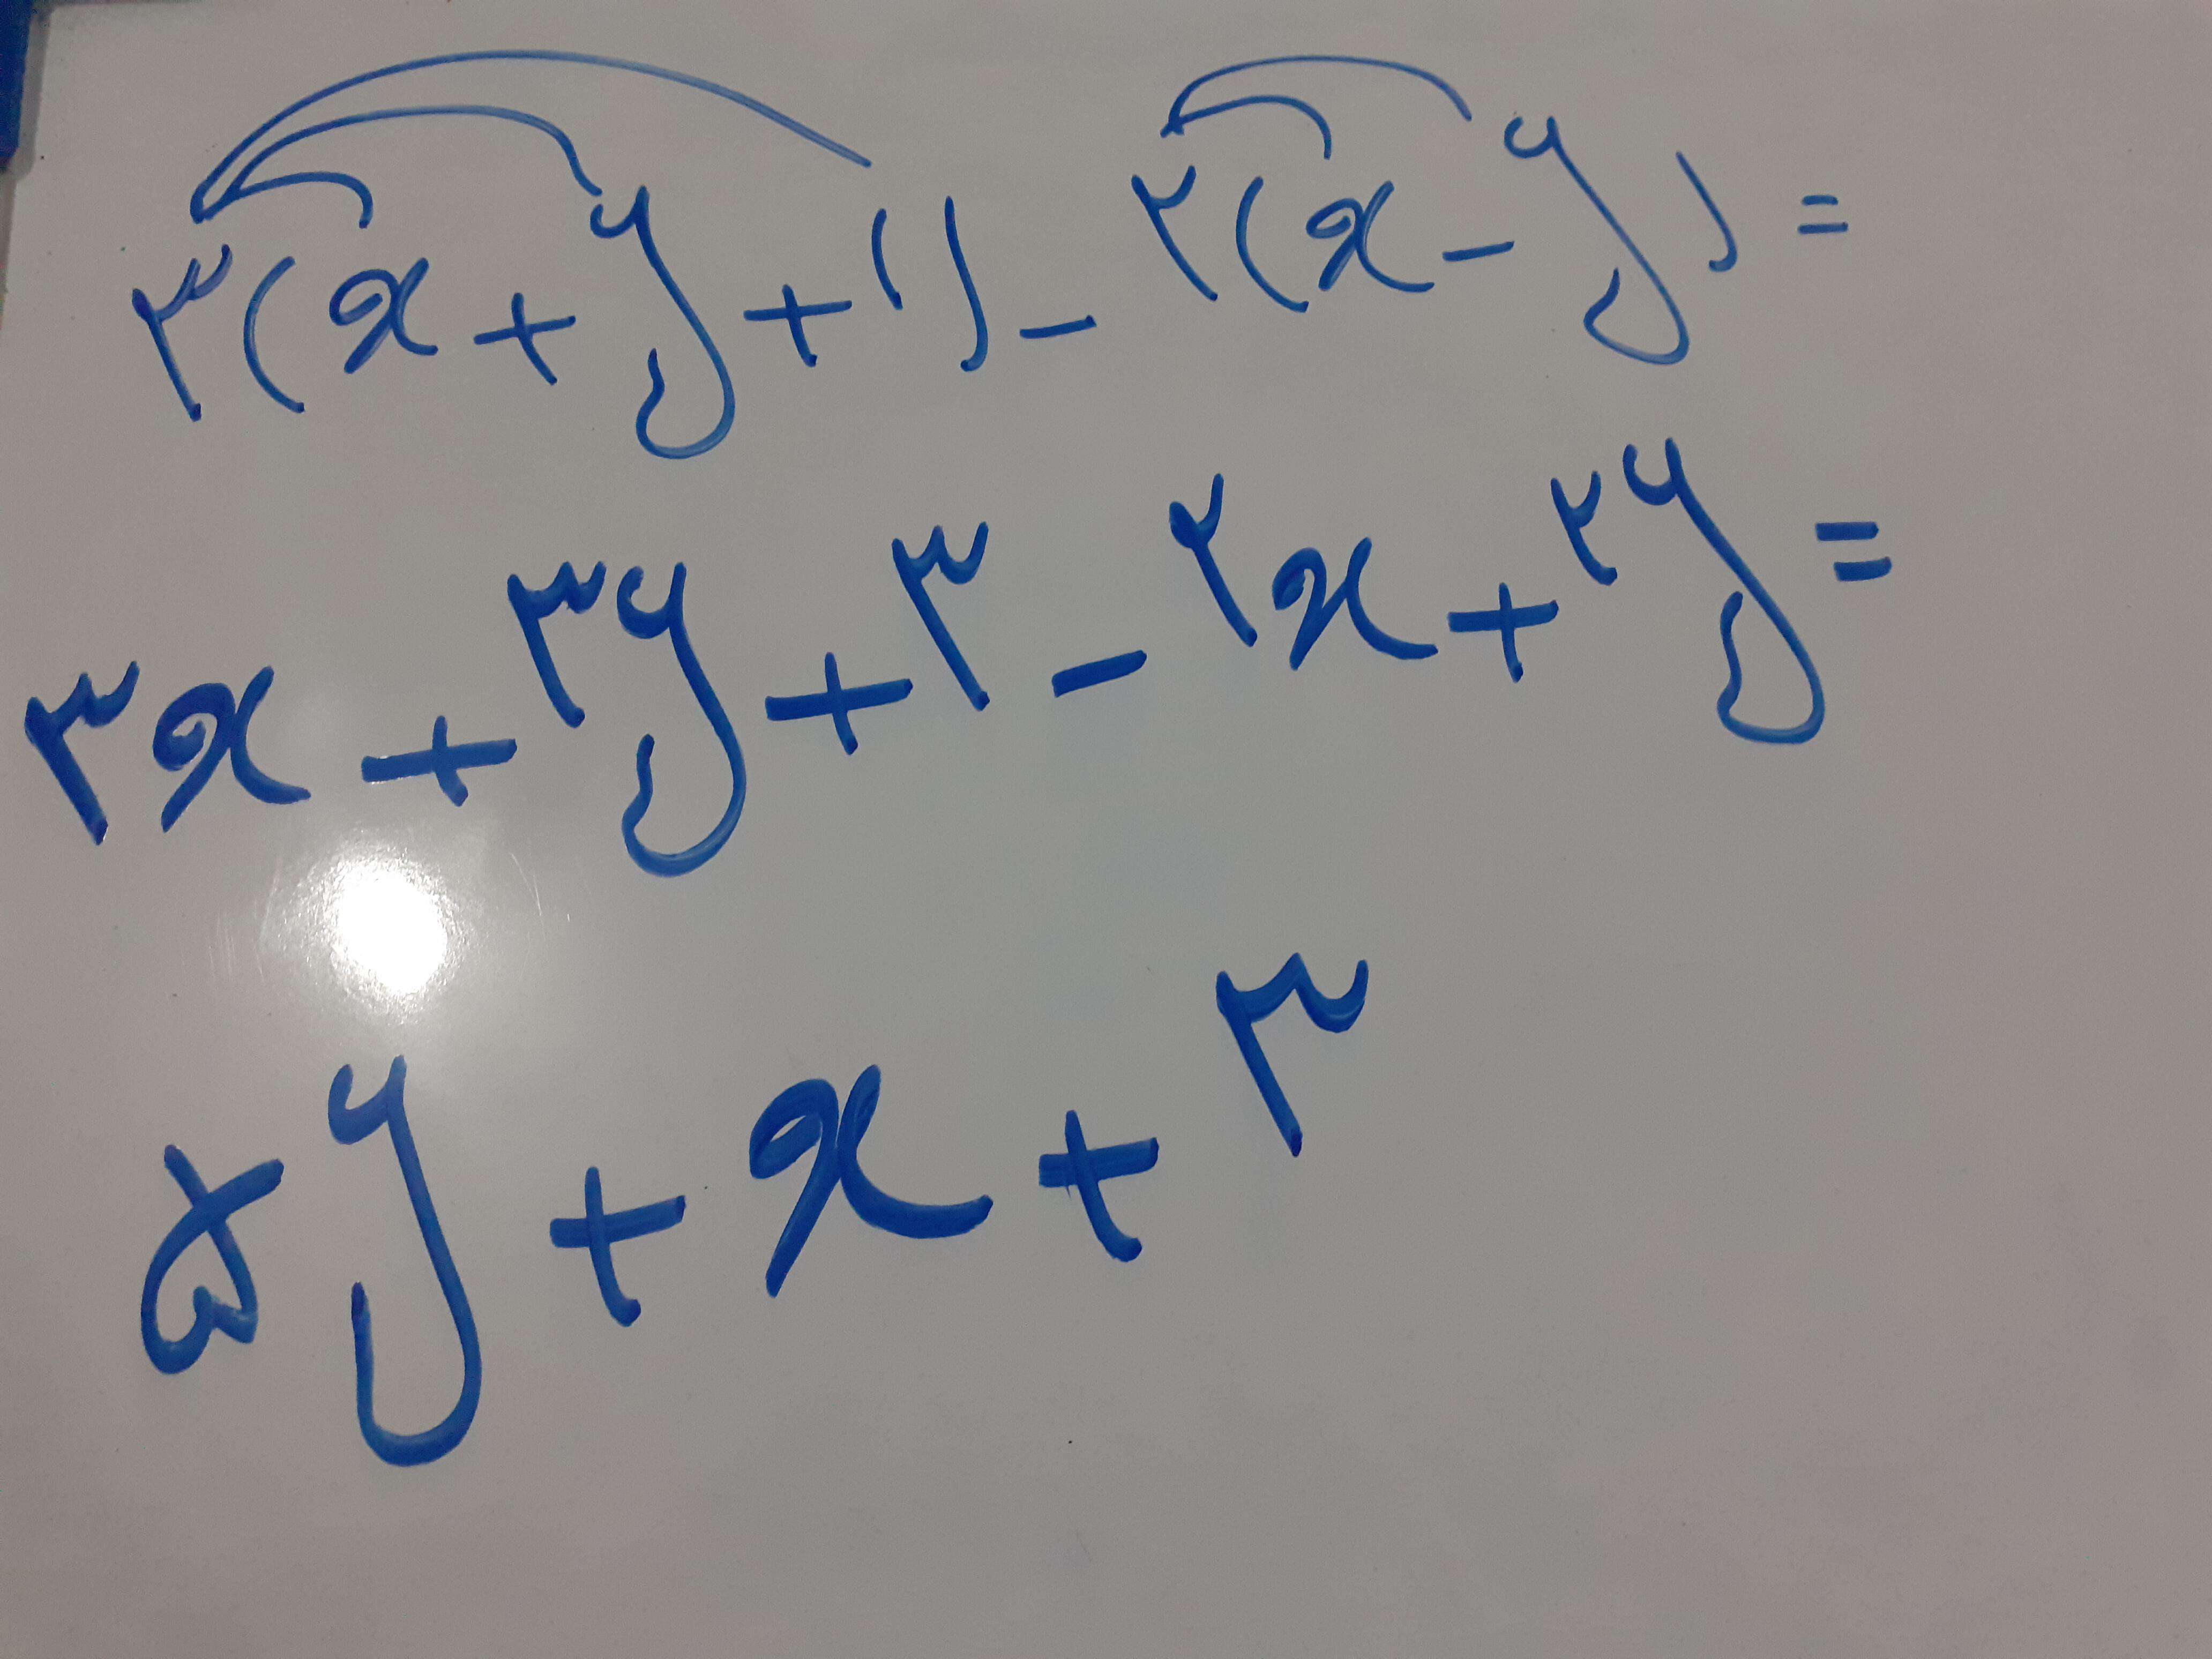 ۳(x+y+۱)-۲(x-y)=
۳x+۳y+۳-۲x+۲y=
۵y+x+۳